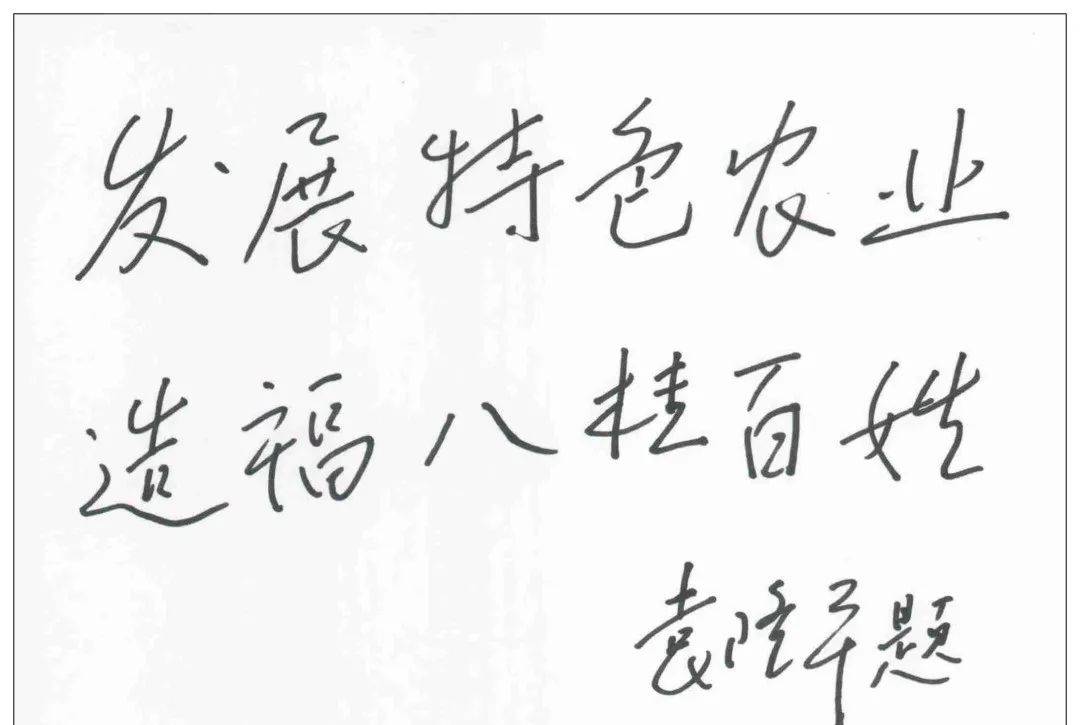 发展特色农业
造福八桂百姓
袁隆平题